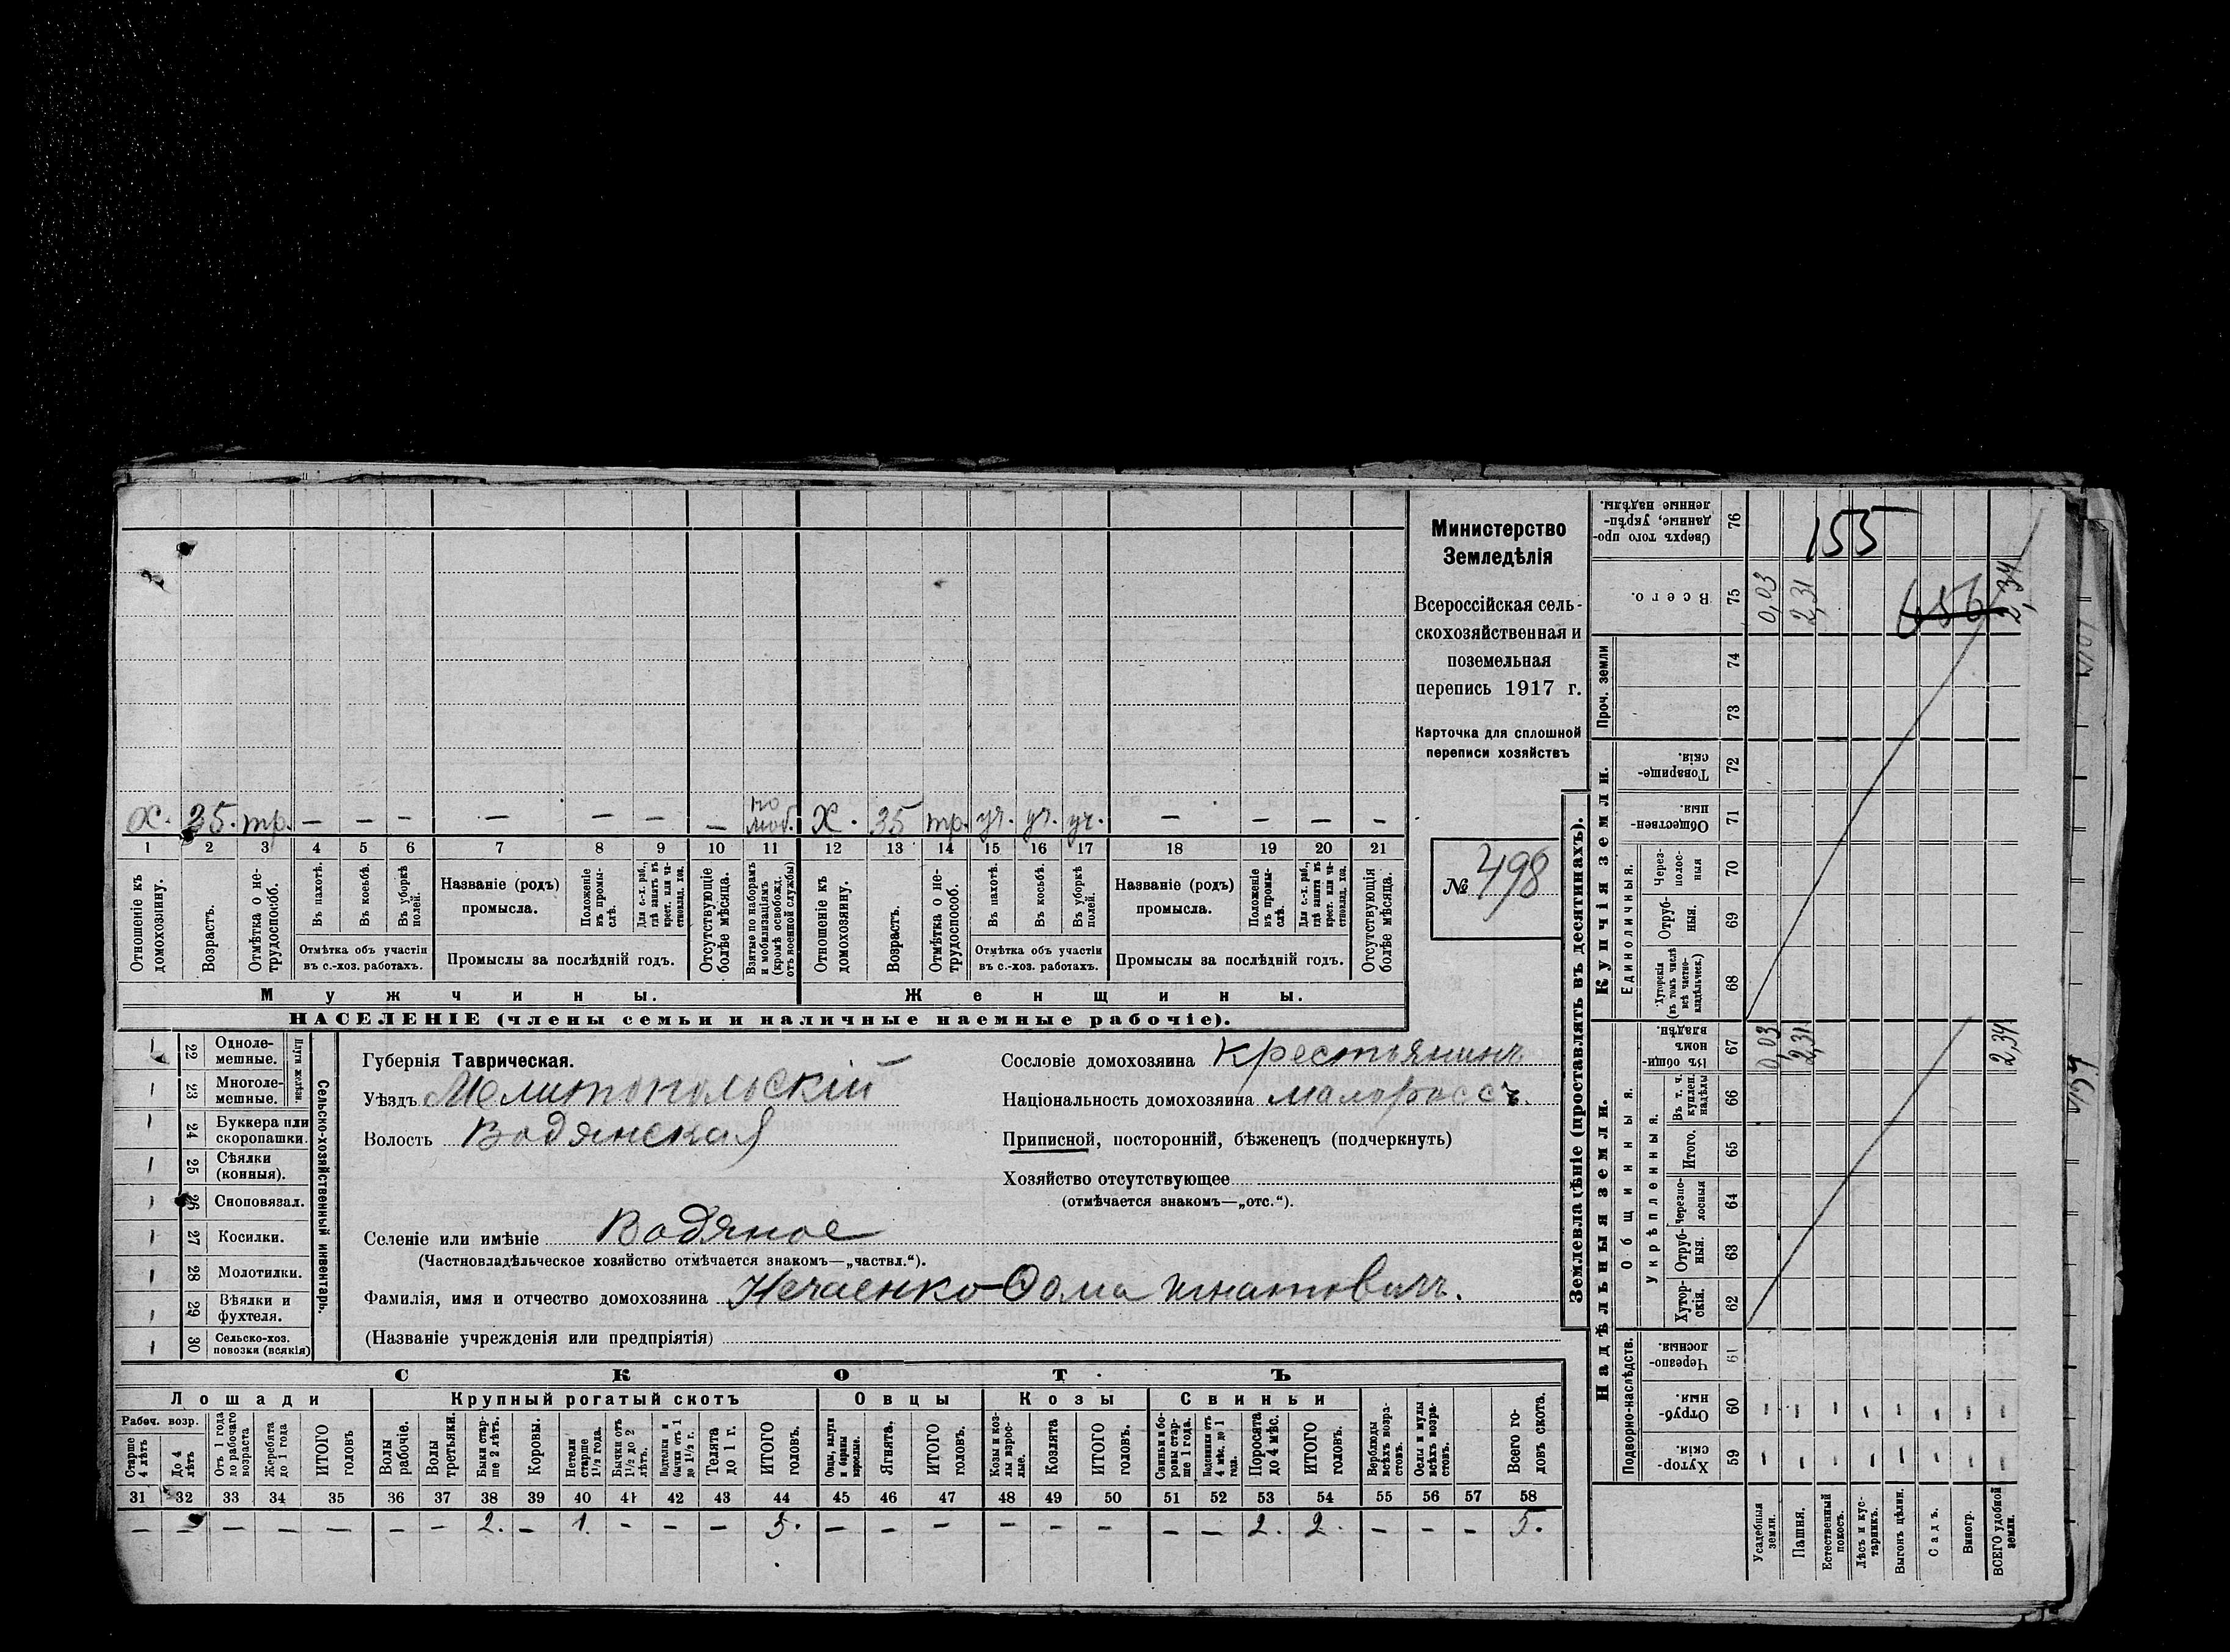 Министерство
Земледѣлія
Всероссійская сель-
скохозяйственная и
поземельная
перепись 1917 г.
Карточка для сплошной
переписи хозяйствъ
№ 498
х. 35. тр. — — — — — — — по моб. х. 35 тр. уч. уч. уч. — — — —
1 2 3 4 5 6 7 8 9 10 11 12 13 14 15 16 17 18 19 20 21
Отношеніе къ домохозяину.
Возрастъ.
Отмѣтка о не-трудоспособ.
Въ пахотѣ.
Въ косьбѣ.
Въ уборкѣ полей.
Отмѣтка объ участіи
въ с.-хоз. работахъ.
Названіе (родъ)
промысла.
Положеніе въ промы-слѣ.
Для с.-х. раб., гдѣ занятъ въ крест. или ча-стновлад. хоз.
Промыслы за послѣдній годъ.
Отсутствующіе болѣе мѣсяца.
Взятые по наборамъ и мобилизаціямъ (кромѣ освобожд. отъ военной службы)
Отношеніе къ домохозяину.
Возрастъ.
Отмѣтка о не-трудоспособ.
Въ пахотѣ.
Въ косьбѣ.
Въ уборкѣ полей.
Отмѣтка объ участіи
въ с.-хоз. работахъ.
Названіе (родъ)
промысла.
Положеніе въ промы-слѣ.
Для с.-х. раб., гдѣ занятъ въ крест. или ча-стновлад. хоз.
Промыслы за послѣдній годъ.
Отсутствующія болѣе мѣсяца.
Мужчины.
Женщины.
НАСЕЛЕНІЕ (члены семьи и наличные наемные рабочіе).
Сельско-хозяйственный инвентарь.
Плуги желѣзн.
— 22 Одноле-мешные.
— 23 Многоле-мешные.
— 24 Буккера или скоропашки.
— 25 Сѣялки (конныя).
— 26 Сноповязал.
— 27 Косилки.
— 28 Молотилки.
— 29 Вѣялки и фухтеля.
— 30 Сельско-хоз. повозки (всякія)
Губернія Таврическая.
Уѣздъ Мелитопольскій
Волость Водянская
Селеніе или имѣніе Водяное
(Частновладѣльческое хозяйство отмѣчается знакомъ—„частвл.“).
Фамилія, имя и отчество домохозяина Нечаенко Ѳома Игнатовичъ.
(Названіе учрежденія или предпріятія)
Сословіе домохозяина Крестьянинъ
Національность домохозяина малороссъ.
Приписной, посторонній, бѣженецъ (подчеркнуть)
Хозяйство отсутствующее
(отмѣчается знакомъ—„отс.“).
СКОТЪ
Лошади
Крупный рогатый скотъ
Овцы
Козы
Свиньи
Рабоч. возр.
Старше 4 лѣтъ
До 4 лѣтъ
Отъ 1 года до рабочаго возраста
Жеребята до 1 года
ИТОГО головъ
Волы рабочіе.
Волы третьяки.
Быки стар-ше 2 лѣтъ.
Коровы.
Нетели старше 1½ года.
Бычки отъ 1½ до 2 лѣтъ.
Подтелки и бычки отъ 1 до 1½ г.
Телята до 1 г.
ИТОГО головъ.
Овцы, валухи и бараны взрослые.
Ягнята.
ИТОГО головъ.
Козы и коз-лы взрос-лые.
Козлята
ИТОГО головъ.
Свиньи и бо-ровы стар-ше 1 года.
Подсвинки отъ 4 мѣс. до 1 года.
Поросята до 4 мѣс.
ИТОГО головъ.
Верблюды всѣхъ возра-стовъ.
Ослы и мулы всѣхъ возра-стовъ.
Всего го-ловъ скота.
31 32 33 34 35 36 37 38 39 40 41 42 43 44 45 46 47 48 49 50 51 52 53 54 55 56 57 58
— — — — — — — 2. — 1. — — — 3. — — — — — — — — 2. 2. — — — 5.
Землевладѣніе (проставлять въ десятинахъ).
Сверхъ того про-данные, укрѣп-ленные надѣлы. 76
155
Всего. 75 0,03 2,31 656 2,34
Проч. земли
74
73
Купчія земли.
Товарище-скія. 72
Обществен-ныя. 71
Единоличныя.
Через-полос-ныя 70
Отруб-ныя. 69
Хуторскія (въ томъ числѣ всѣ частно-владѣльческ.) 68
Надѣльныя земли.
Общинныя.
Въ общи-номъ владѣн. 67 0,03 2,31 2,34
Укрѣпленныя.
Въ т. ч. куплен. надѣлы 66
Итого. 65
Черезпо-лосныя 64
Отруб-ныя. 63
Хутор-скія. 62
Подворно-наслѣдств.
Черезпо-лосныя. 61
Отруб-ныя. 60 — — — — — — — —
Хутор-скія. 59 — — — — — — — —
Усадебныя земли.
Пашня.
Естественный покосъ.
Лѣсъ и кус-тарникъ.
Выгонъ цѣлин.
Садъ.
Виногр.
ВСЕГО удобной земли.